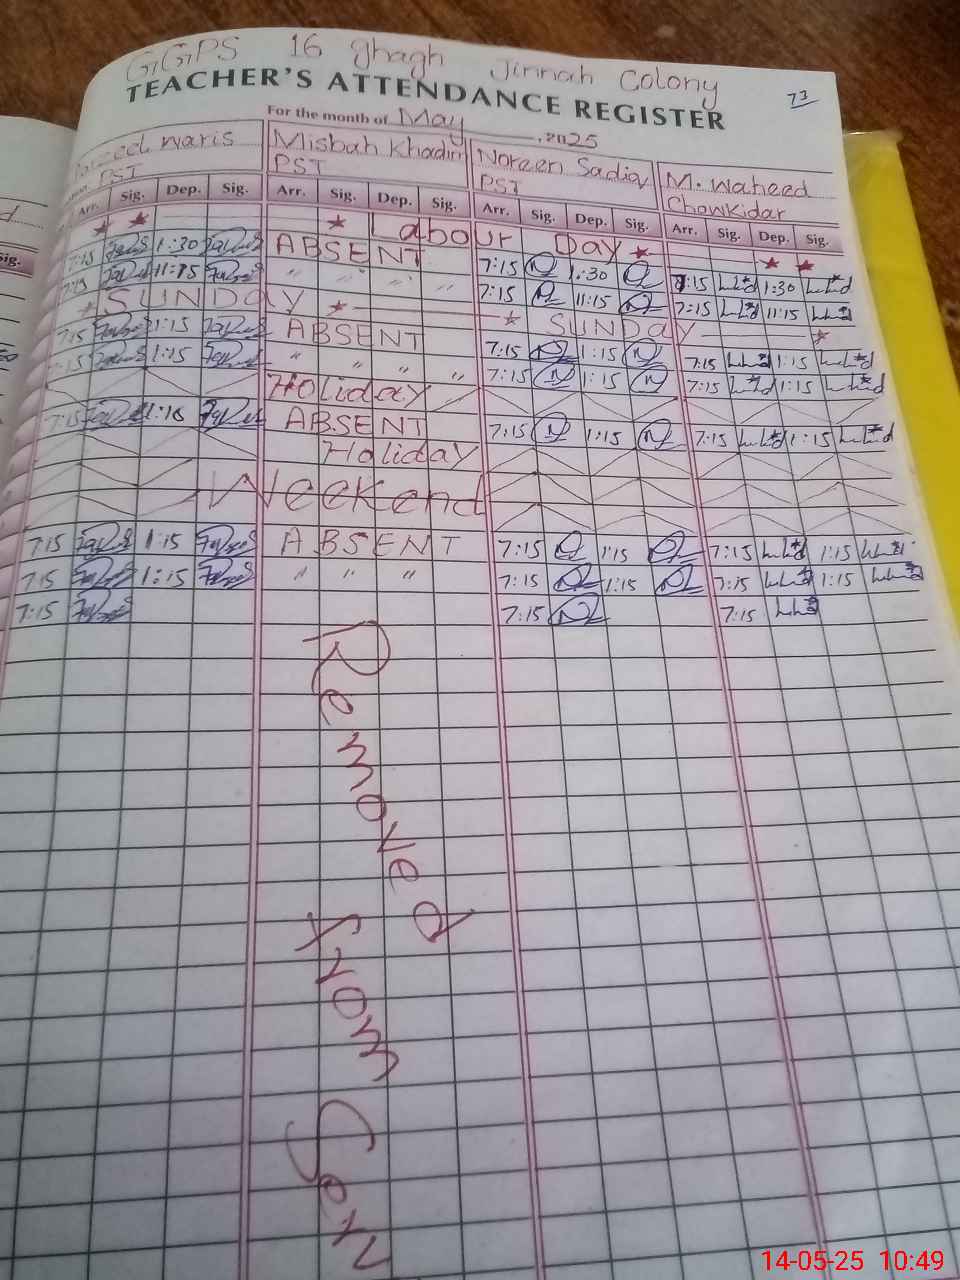 GGPS 16 ghagh Jinnah Colony
TEACHER'S ATTENDANCE REGISTER
73
For the month of May, 2025
waris Misbah Khadim Noreen Sadiq M. Waheed
PST PST PST Chowkidar
Arr. Sig. Dep. Sig. Arr. Sig. Dep. Sig. Arr. Sig. Dep. Sig. Arr. Sig. Dep. Sig.
Labour Day
7:15 1:30 ABSENT 7:15 1:30 7:15 1:30
7:15 11:15 " " " " 7:15 11:15 7:15 11:15
SUNDay SUNDay
7:15 1:15 ABSENT 7:15 1:15 7:15 1:15
7:15 1:15 " " " " 7:15 1:15 7:15 1:15
Holiday
7:15 1:16 ABSENT 7:15 1:15 7:15 1:15
Holiday
Weekend
7:15 1:15 ABSENT 7:15 1:15 7:15 1:15
7:15 1:15 " " " 7:15 1:15 7:15 1:15
7:15 7:15 7:15
Removed
from
Serv
14-05-25 10:49